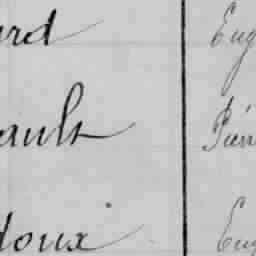 ard Eug
ault Pierr
doux Eug